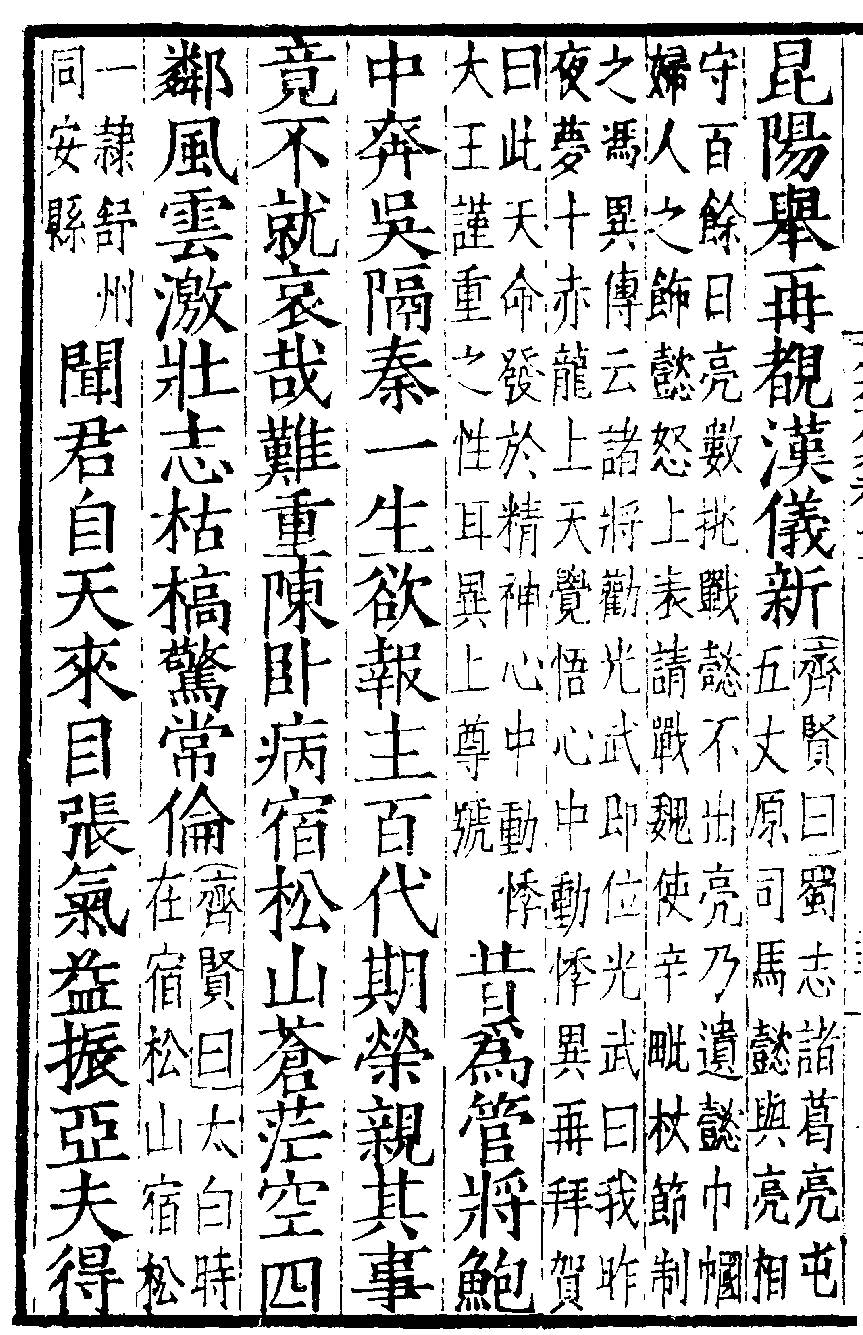 昆陽舉再覩漢儀新齊賢曰蜀志諸葛亮屯五丈原司馬懿與亮相
守百餘日亮數挑戰懿不出亮乃遺懿巾幗婦人之飾懿怒上表請戰魏使辛毗杖節制
之馮異傳云諸將勸光武即位光武曰我昨夜夢十赤龍上天覺悟心中動悸異再拜賀
曰此天命發於精神心中動悸大王謹重之性耳異上尊號昔爲管將鮑
中奔吳隔秦一生欲報主百代期榮親其事
竟不就哀哉難重陳卧病宿松山蒼茫空四
鄰風雲激壯志枯槁驚常倫齊賢曰太白時在宿松山宿松
一隷舒州同安縣聞君自天來目張氣益振亞夫得